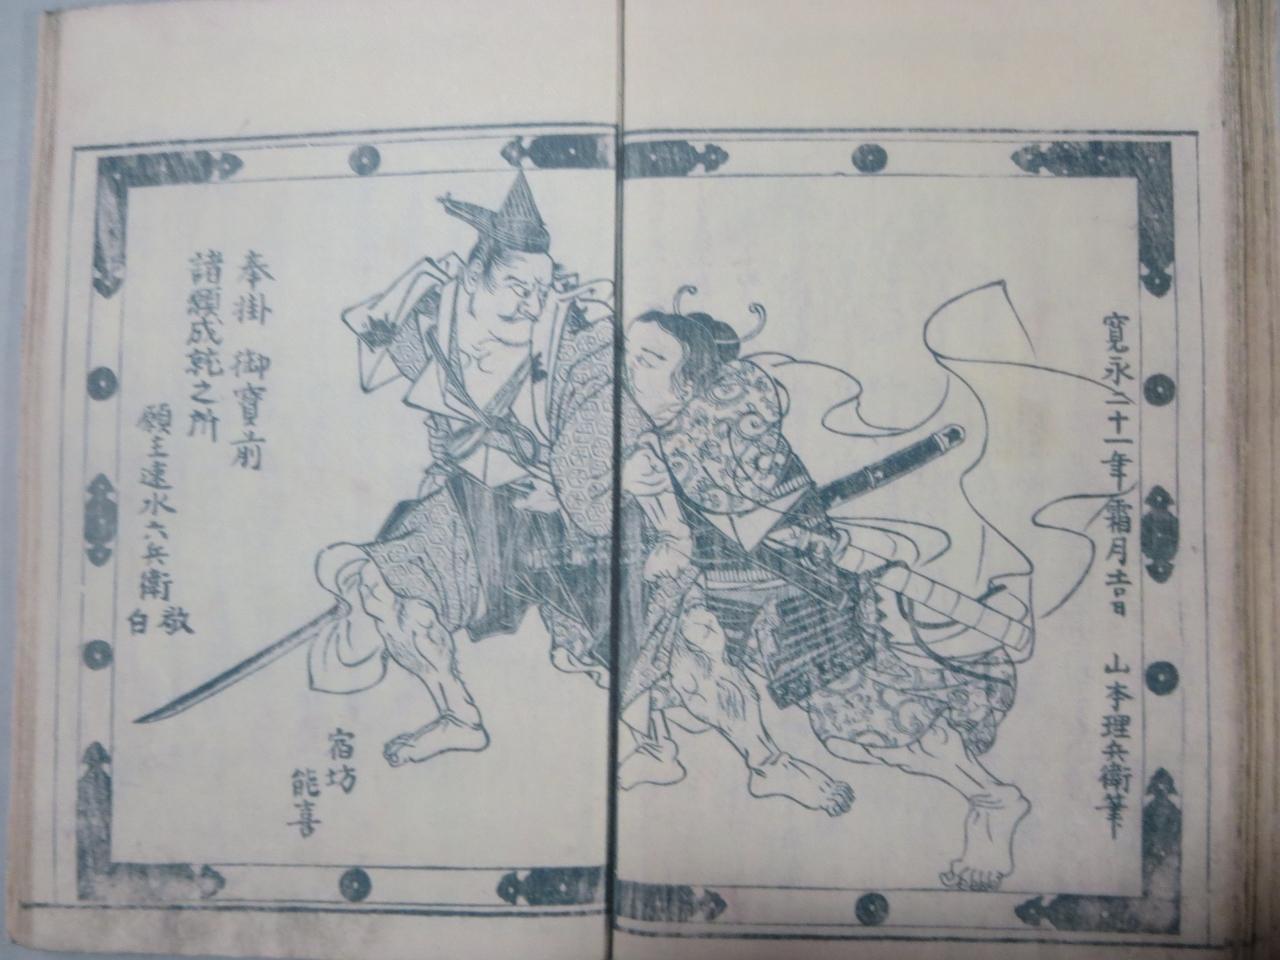 寛永二十一年霜月吉日　山本理兵衛筆
奉掛　御寶前
諸願成就之所
願主速水六兵衛敬白
宿坊
能喜